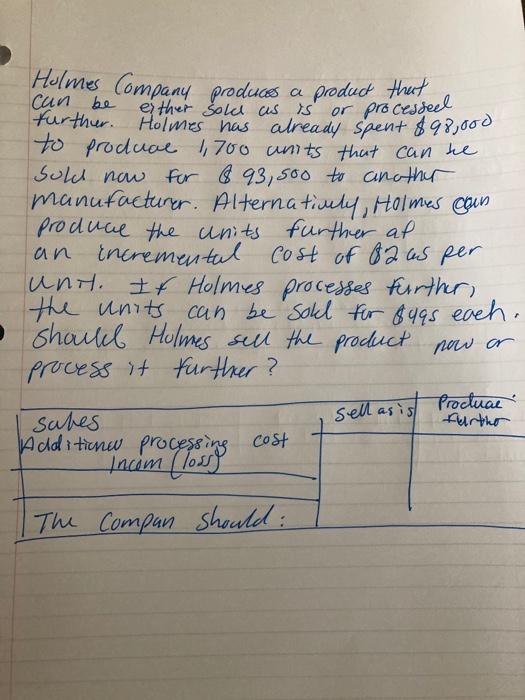 Holmes Company produces a product that
can be either sold as is or processed
further. Holmes has already spent $98,000
to produce 1,700 units that can be
sold now for $93,500 to another
manufacturer. Alternatively, Holmes can
produce the units further at
an incremental cost of per
unit. If Holmes processes further,
the units can be sold for each.
should Holmes sell the product now or
process it further?
Sales Sell as is Produce
Additional processing cost further
Incom (loss)
The Compan Should: